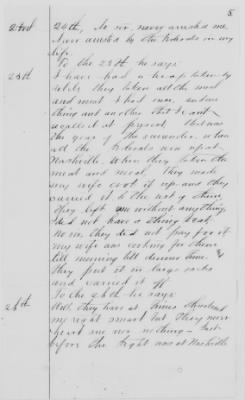 8
23rd 24th, No sir, never arrested me,
I was arrested by the Rebels in my
life.
To the 25th he says
25th I have had a heap taken by
rebels they taken all the meal
and meat I had once, and one
thing and another that I cant
recollect it at present. That was
the year of the surrender, when
all the Rebels was up at
Nashville, When they taken the
meat and meal, They made
my wife cook it up and they
carried it to the rest of them
They left me without anything,
did not have a thing to eat,
No sir, they did not pay for it
my wife was cooking for them
till morning till dinner time.
They put it in large sacks
and carried it off
To the 26th he says
26th Well, they have at times threatened
my right smart but they never
hurt me nor nothing – Just
before the fight was at Nashville